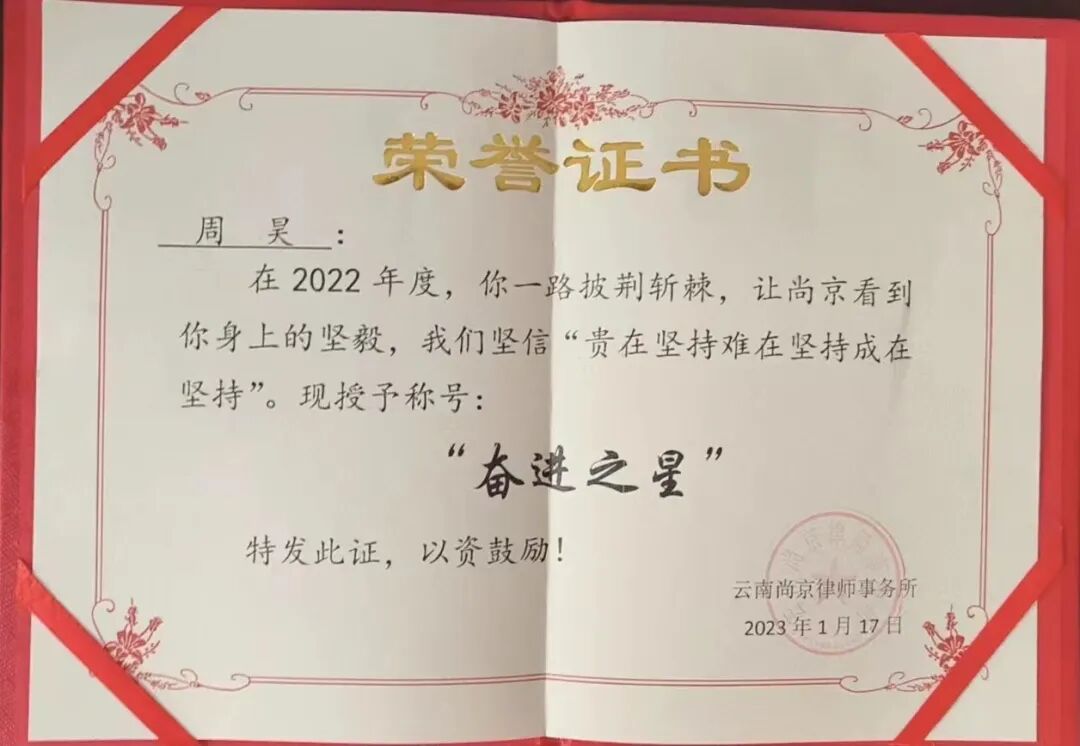 荣誉证书
周 昊：
在 2022 年度，你一路披荆斩棘，让尚京看到
你身上的坚毅，我们坚信“贵在坚持难在坚持成在
坚持”。现授予称号：
“奋进之星”
特发此证，以资鼓励！
云南尚京律师事务所
2023 年 1 月 17 日